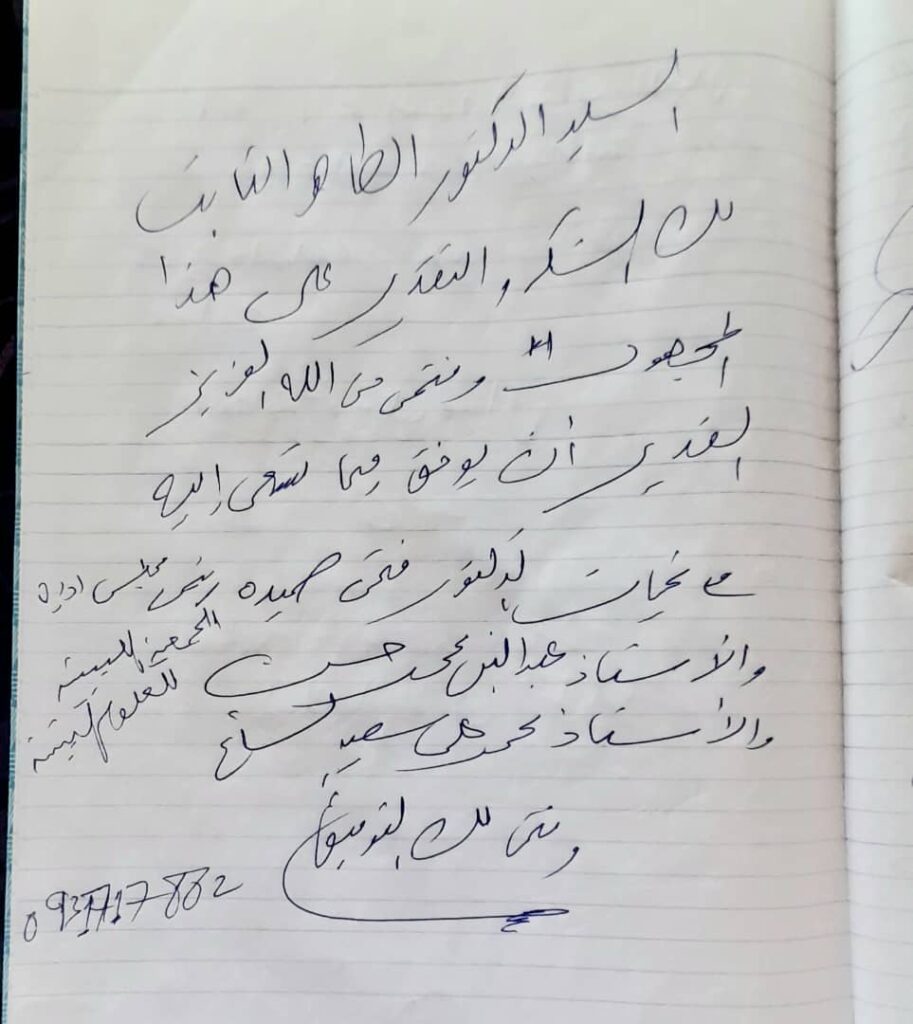 السيد الدكتور الطاهر الثابت
لك الشكر والتقدير على هذا
المجهود ونتمنى من الله العزيز
القدير أن يوفق فيما تسعى إليه
مع تحيات الدكتور فتحي حميده رئيس مجلس ادارة
الجمعية الليبية
للعلوم
والأستاذ عبد النبي محمد حسن
والأستاذ محمد علي سعيد
ونتمنى لك التوفيق